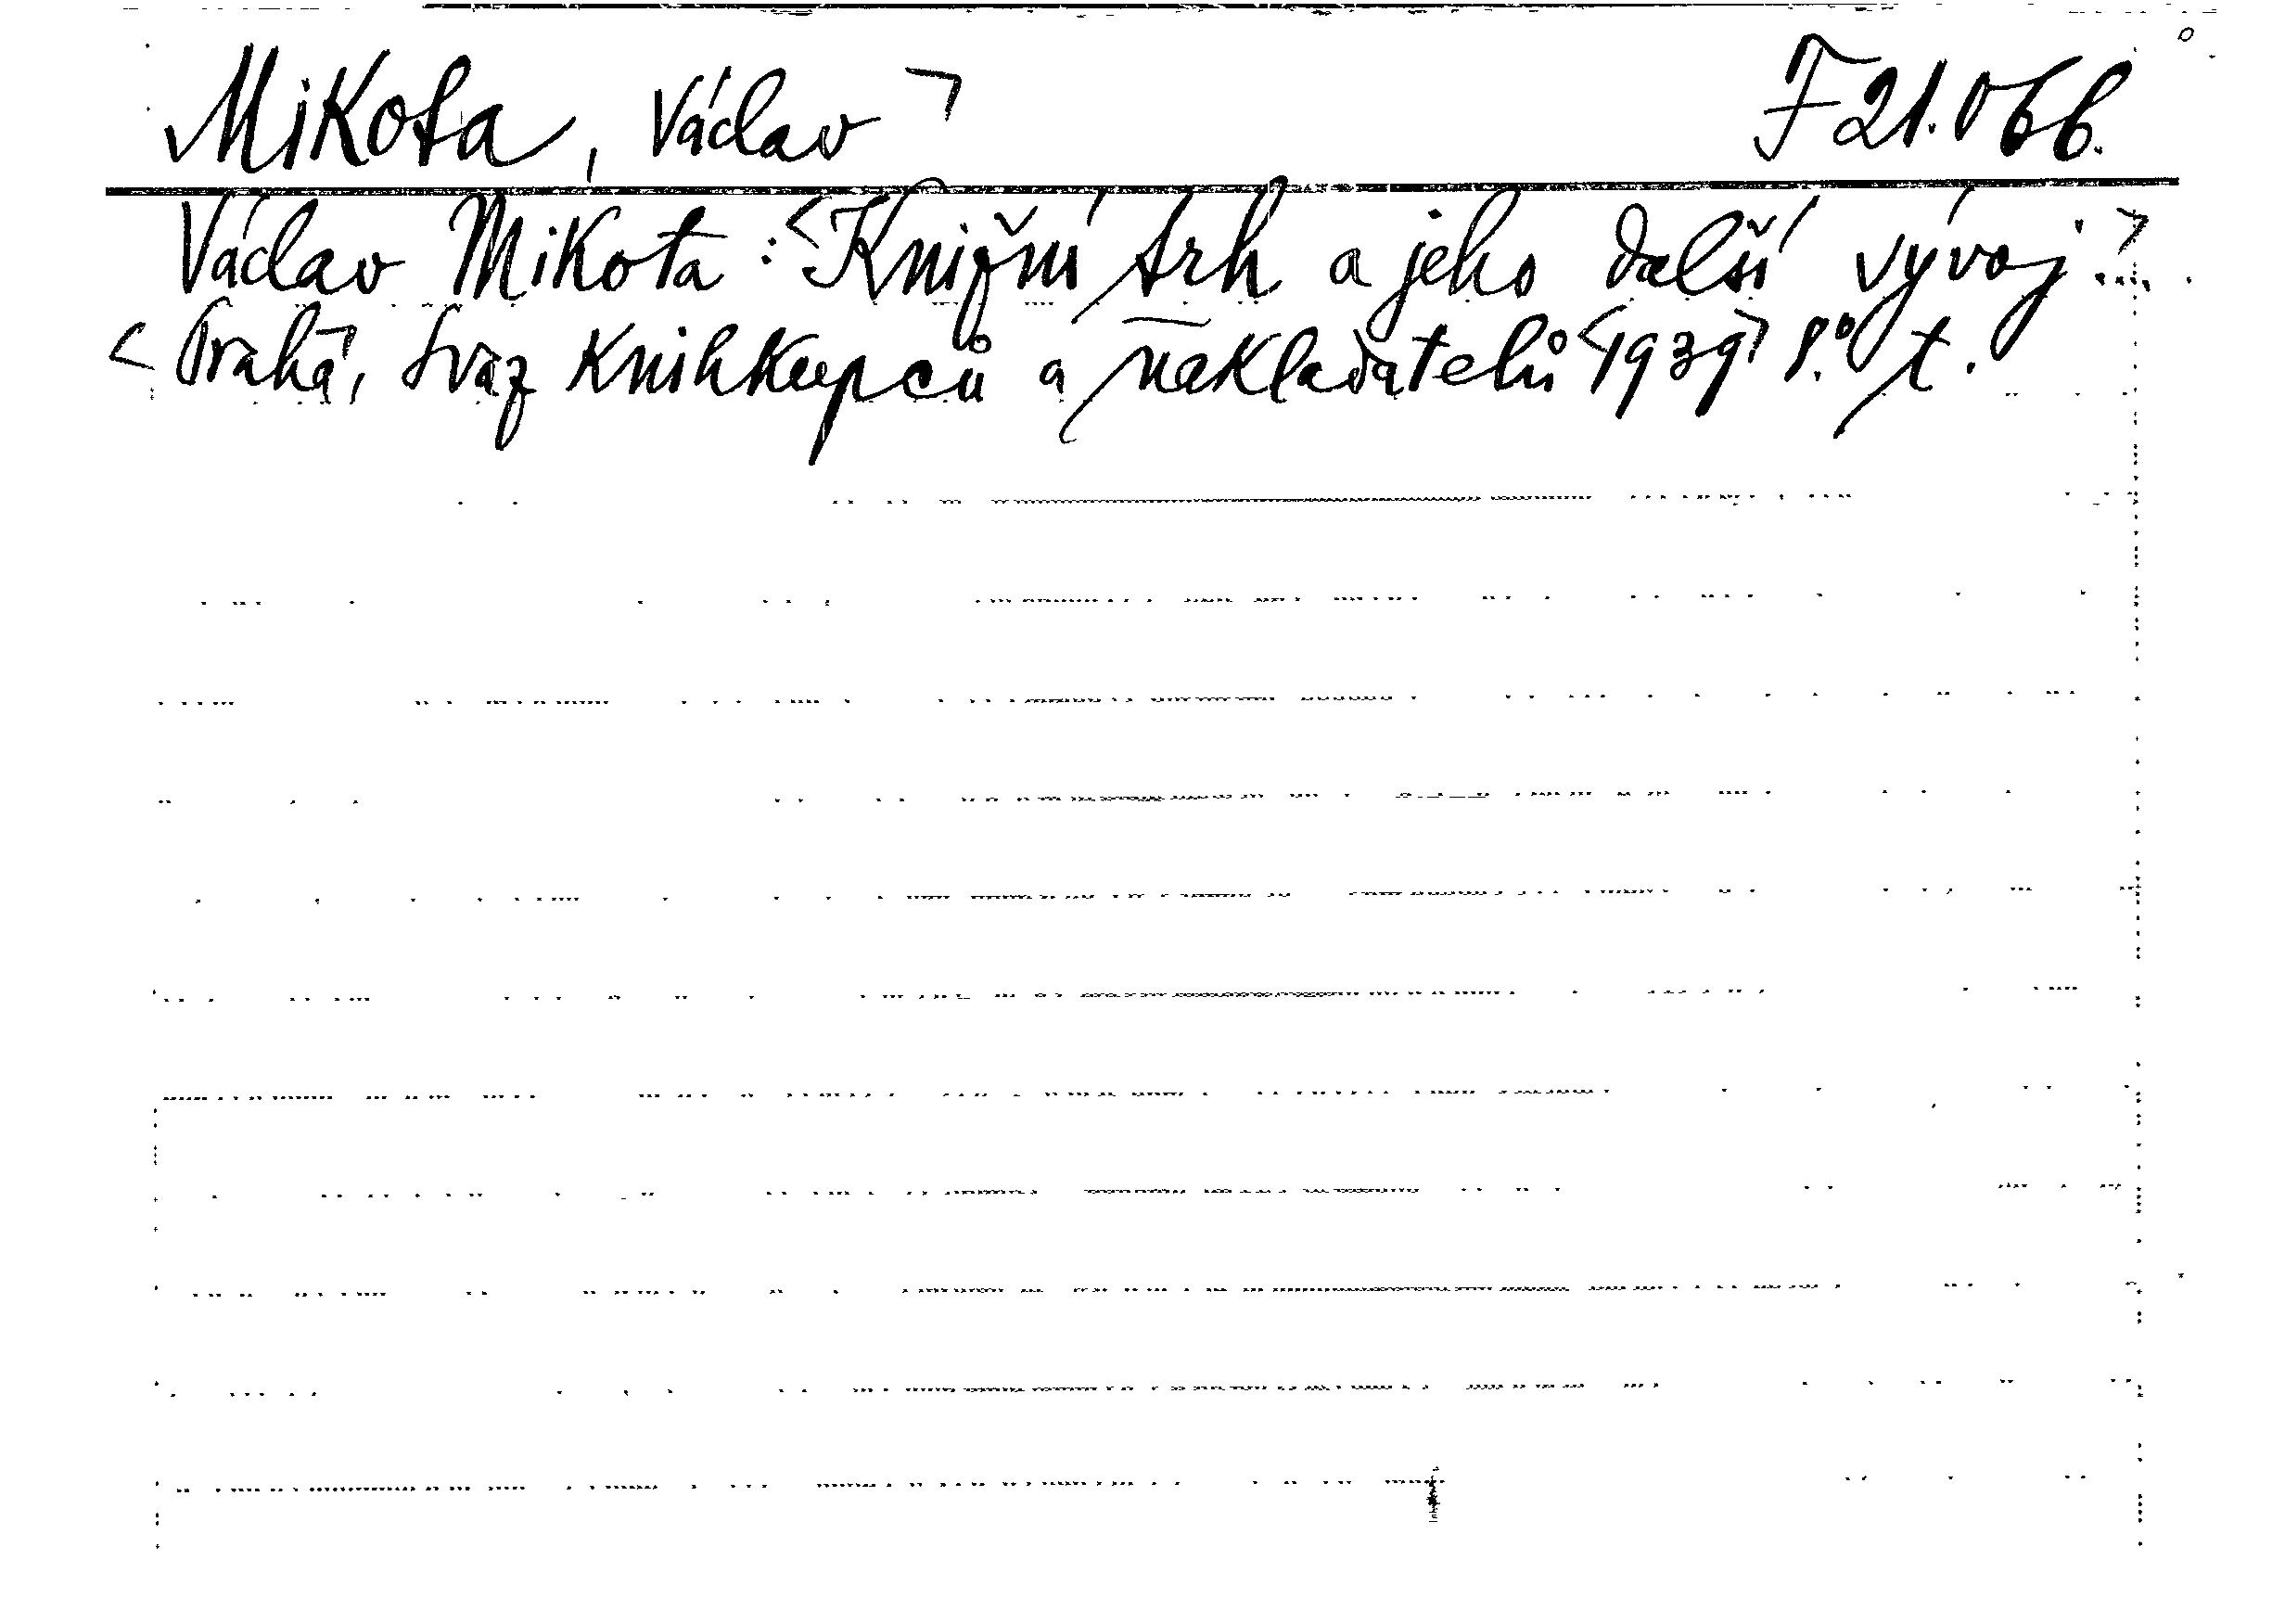 Mikota, Václav ˥ F 21.066.
Václav Mikota: <Knižní trh a jeho další vývoj.>...
<Praha>, Svaz knihkupců a nakladatelů <1939> 8.° t.